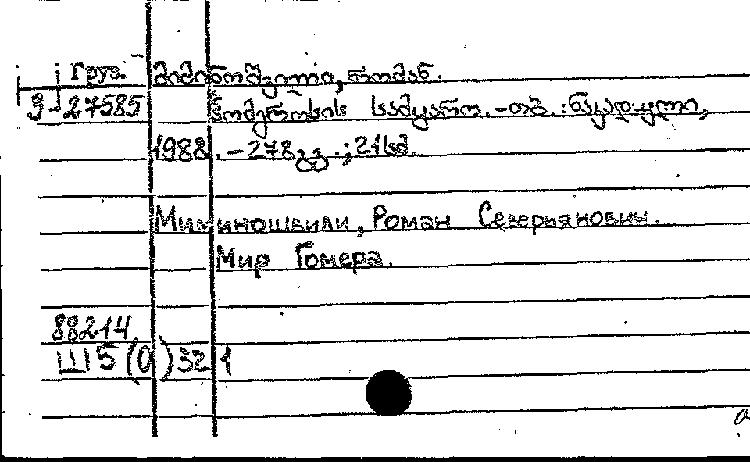 Груз. მიმინოშვილი, რომან.
З-27585 ჰომეროსის სამყარო. -თბ. : ნაკადული,
1988. -278გვ. ; 21სმ.
Миминошвили, Роман Северьянович.
Мир Гомера.
88214
Ш5(0)321